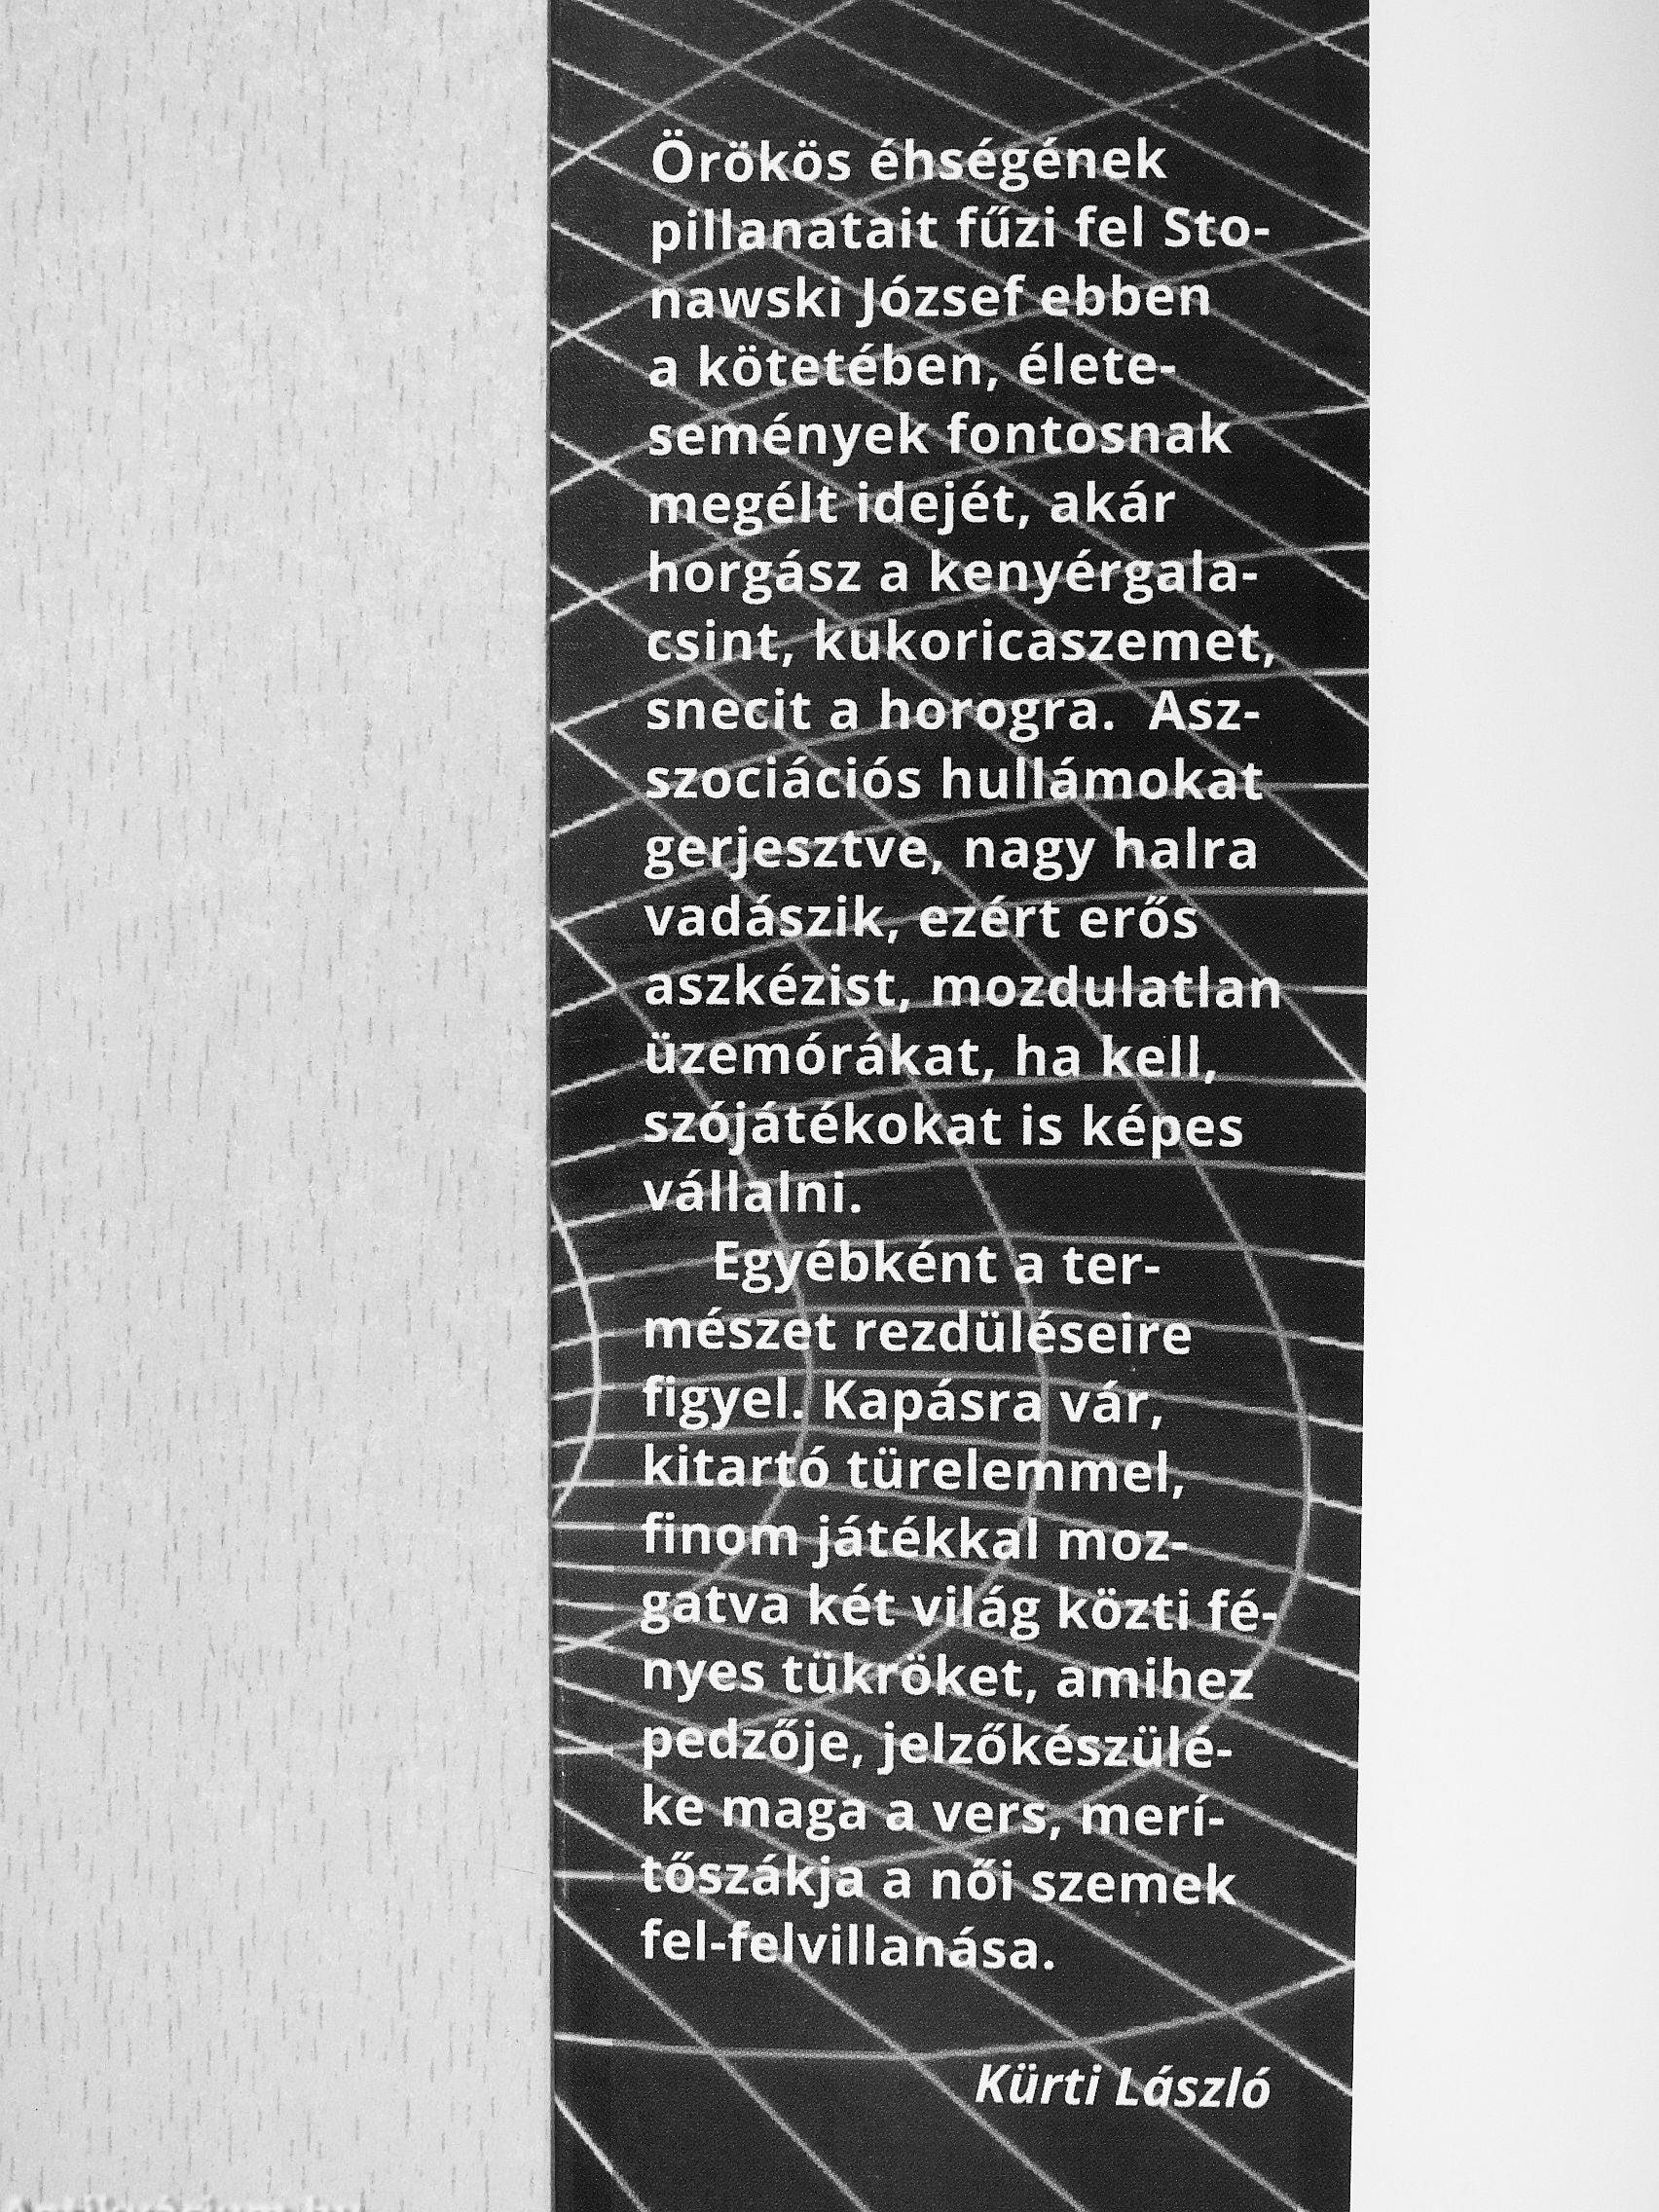 Örökös éhségének
pillanatait fűzi fel Sto-
nawski József ebben
a kötetében, élete-
semények fontosnak
megélt idejét, akár
horgász a kenyérgala-
csint, kukoricaszemet,
snecit a horogra. Asz-
szociációs hullámokat
gerjesztve, nagy halra
vadászik, ezért erős
aszkézist, mozdulatlan
üzemórákat, ha kell,
szójátékokat is képes
vállalni.
Egyébként a ter-
mészet rezdüléseire
figyel. Kapásra vár,
kitartó türelemmel,
finom játékkal moz-
gatva két világ közti fé-
nyes tükröket, amihez
pedzője, jelzőkészülé-
ke maga a vers, merí-
tőszákja a női szemek
fel-felvillanása.
Kürti László